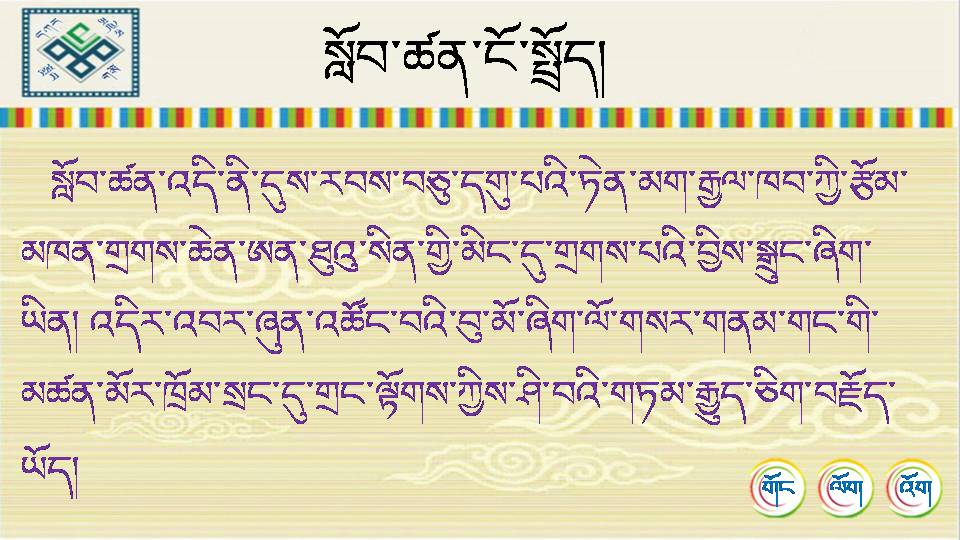 སློབ་ཚན་ངོ་སྤྲོད།
སློབ་ཚན་འདི་ནི་དུས་རབས་བཅུ་དགུ་པའི་ཏེན་མག་རྒྱལ་ཁབ་ཀྱི་རྩོམ་
མཁན་གྲགས་ཆེན་ཨན་ཐུའུ་སིན་གྱི་མིང་དུ་གྲགས་པའི་བྱིས་སྒྲུང་ཞིག་
ཡིན། འདིར་འབར་ཞུན་འཚོང་བའི་བུ་མོ་ཞིག་ལོ་གསར་གནམ་གང་གི་
མཚན་མོར་ཁྲོམ་སྲང་དུ་གྲང་ལྟོགས་ཀྱིས་ཤི་བའི་གཏམ་རྒྱུད་ཅིག་བརྗོད་
ཡོད།
གོང ལོག འོག